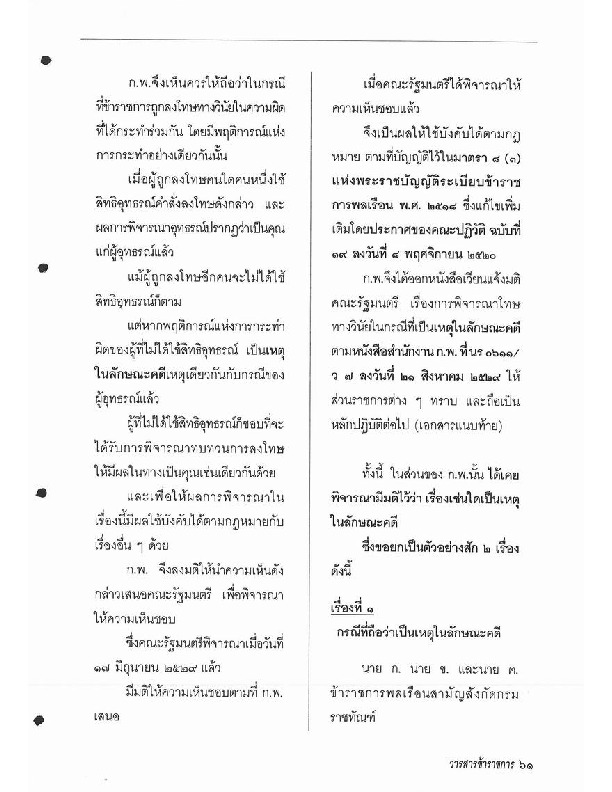 ก.พ.จึงเห็นควรให้ถือว่าในกรณี
ที่ข้าราชการถูกลงโทษทางวินัยในความผิด
ที่ได้กระทำร่วมกัน โดยมีพฤติการณ์แห่ง
การกระทำอย่างเดียวกันนั้น
เมื่อผู้ถูกลงโทษคนใดคนหนึ่งใช้
สิทธิอุทธรณ์คำสั่งลงโทษดังกล่าว และ
ผลการพิจารณาอุทธรณ์ปรากฏว่าเป็นคุณ
แก่ผู้อุทธรณ์แล้ว
แม้ผู้ถูกลงโทษอีกคนจะไม่ได้ใช้
สิทธิอุทธรณ์ก็ตาม
แต่หากพฤติการณ์แห่งการกระทำ
ผิดของผู้ที่ไม่ได้ใช้สิทธิอุทธรณ์ เป็นเหตุ
ในลักษณะคดีเหตุเดียวกันกับกรณีของ
ผู้อุทธรณ์แล้ว
ผู้ที่ไม่ได้ใช้สิทธิอุทธรณ์ก็ชอบที่จะ
ได้รับการพิจารณาทบทวนการลงโทษ
ให้มีผลในทางเป็นคุณเช่นเดียวกันด้วย
และเพื่อให้ผลการพิจารณาใน
เรื่องนี้มีผลใช้บังคับได้ตามกฎหมายกับ
เรื่องอื่น ๆ ด้วย
ก.พ. จึงลงมติให้นำความเห็นดัง
กล่าวเสนอคณะรัฐมนตรี เพื่อพิจารณา
ให้ความเห็นชอบ
ซึ่งคณะรัฐมนตรีพิจารณาเมื่อวันที่
๑๗ มิถุนายน ๒๕๒๙ แล้ว
มีมติให้ความเห็นชอบตามที่ ก.พ.
เสนอ
เมื่อคณะรัฐมนตรีได้พิจารณาให้
ความเห็นชอบแล้ว
จึงเป็นผลให้ใช้บังคับได้ตามกฎ
หมาย ตามที่บัญญัติไว้ในมาตรา ๘ (๑)
แห่งพระราชบัญญัติระเบียบข้าราช
การพลเรือน พ.ศ. ๒๕๑๘ ซึ่งแก้ไขเพิ่ม
เติมโดยประกาศของคณะปฏิวัติ ฉบับที่
๑๙ ลงวันที่ ๘ พฤศจิกายน ๒๕๒๐
ก.พ.จึงได้ออกหนังสือเวียนแจ้งมติ
คณะรัฐมนตรี เรื่องการพิจารณาโทษ
ทางวินัยในกรณีที่เป็นเหตุในลักษณะคดี
ตามหนังสือสำนักงาน ก.พ. ที่ นร ๐๖๑๑/
ว ๗ ลงวันที่ ๒๑ สิงหาคม ๒๕๒๙ ให้
ส่วนราชการต่าง ๆ ทราบ และถือเป็น
หลักปฏิบัติต่อไป (เอกสารแนบท้าย)
ทั้งนี้ ในส่วนของ ก.พ.นั้น ได้เคย
พิจารณามีมติไว้ว่า เรื่องเช่นใดเป็นเหตุ
ในลักษณะคดี
ซึ่งขอยกเป็นตัวอย่างสัก ๒ เรื่อง
ดังนี้
เรื่องที่ ๑
กรณีที่ถือว่าเป็นเหตุในลักษณะคดี
นาย ก. นาย ข. และนาย ค.
ข้าราชการพลเรือนสามัญสังกัดกรม
ราชทัณฑ์
วารสารข้าราชการ ๖๑